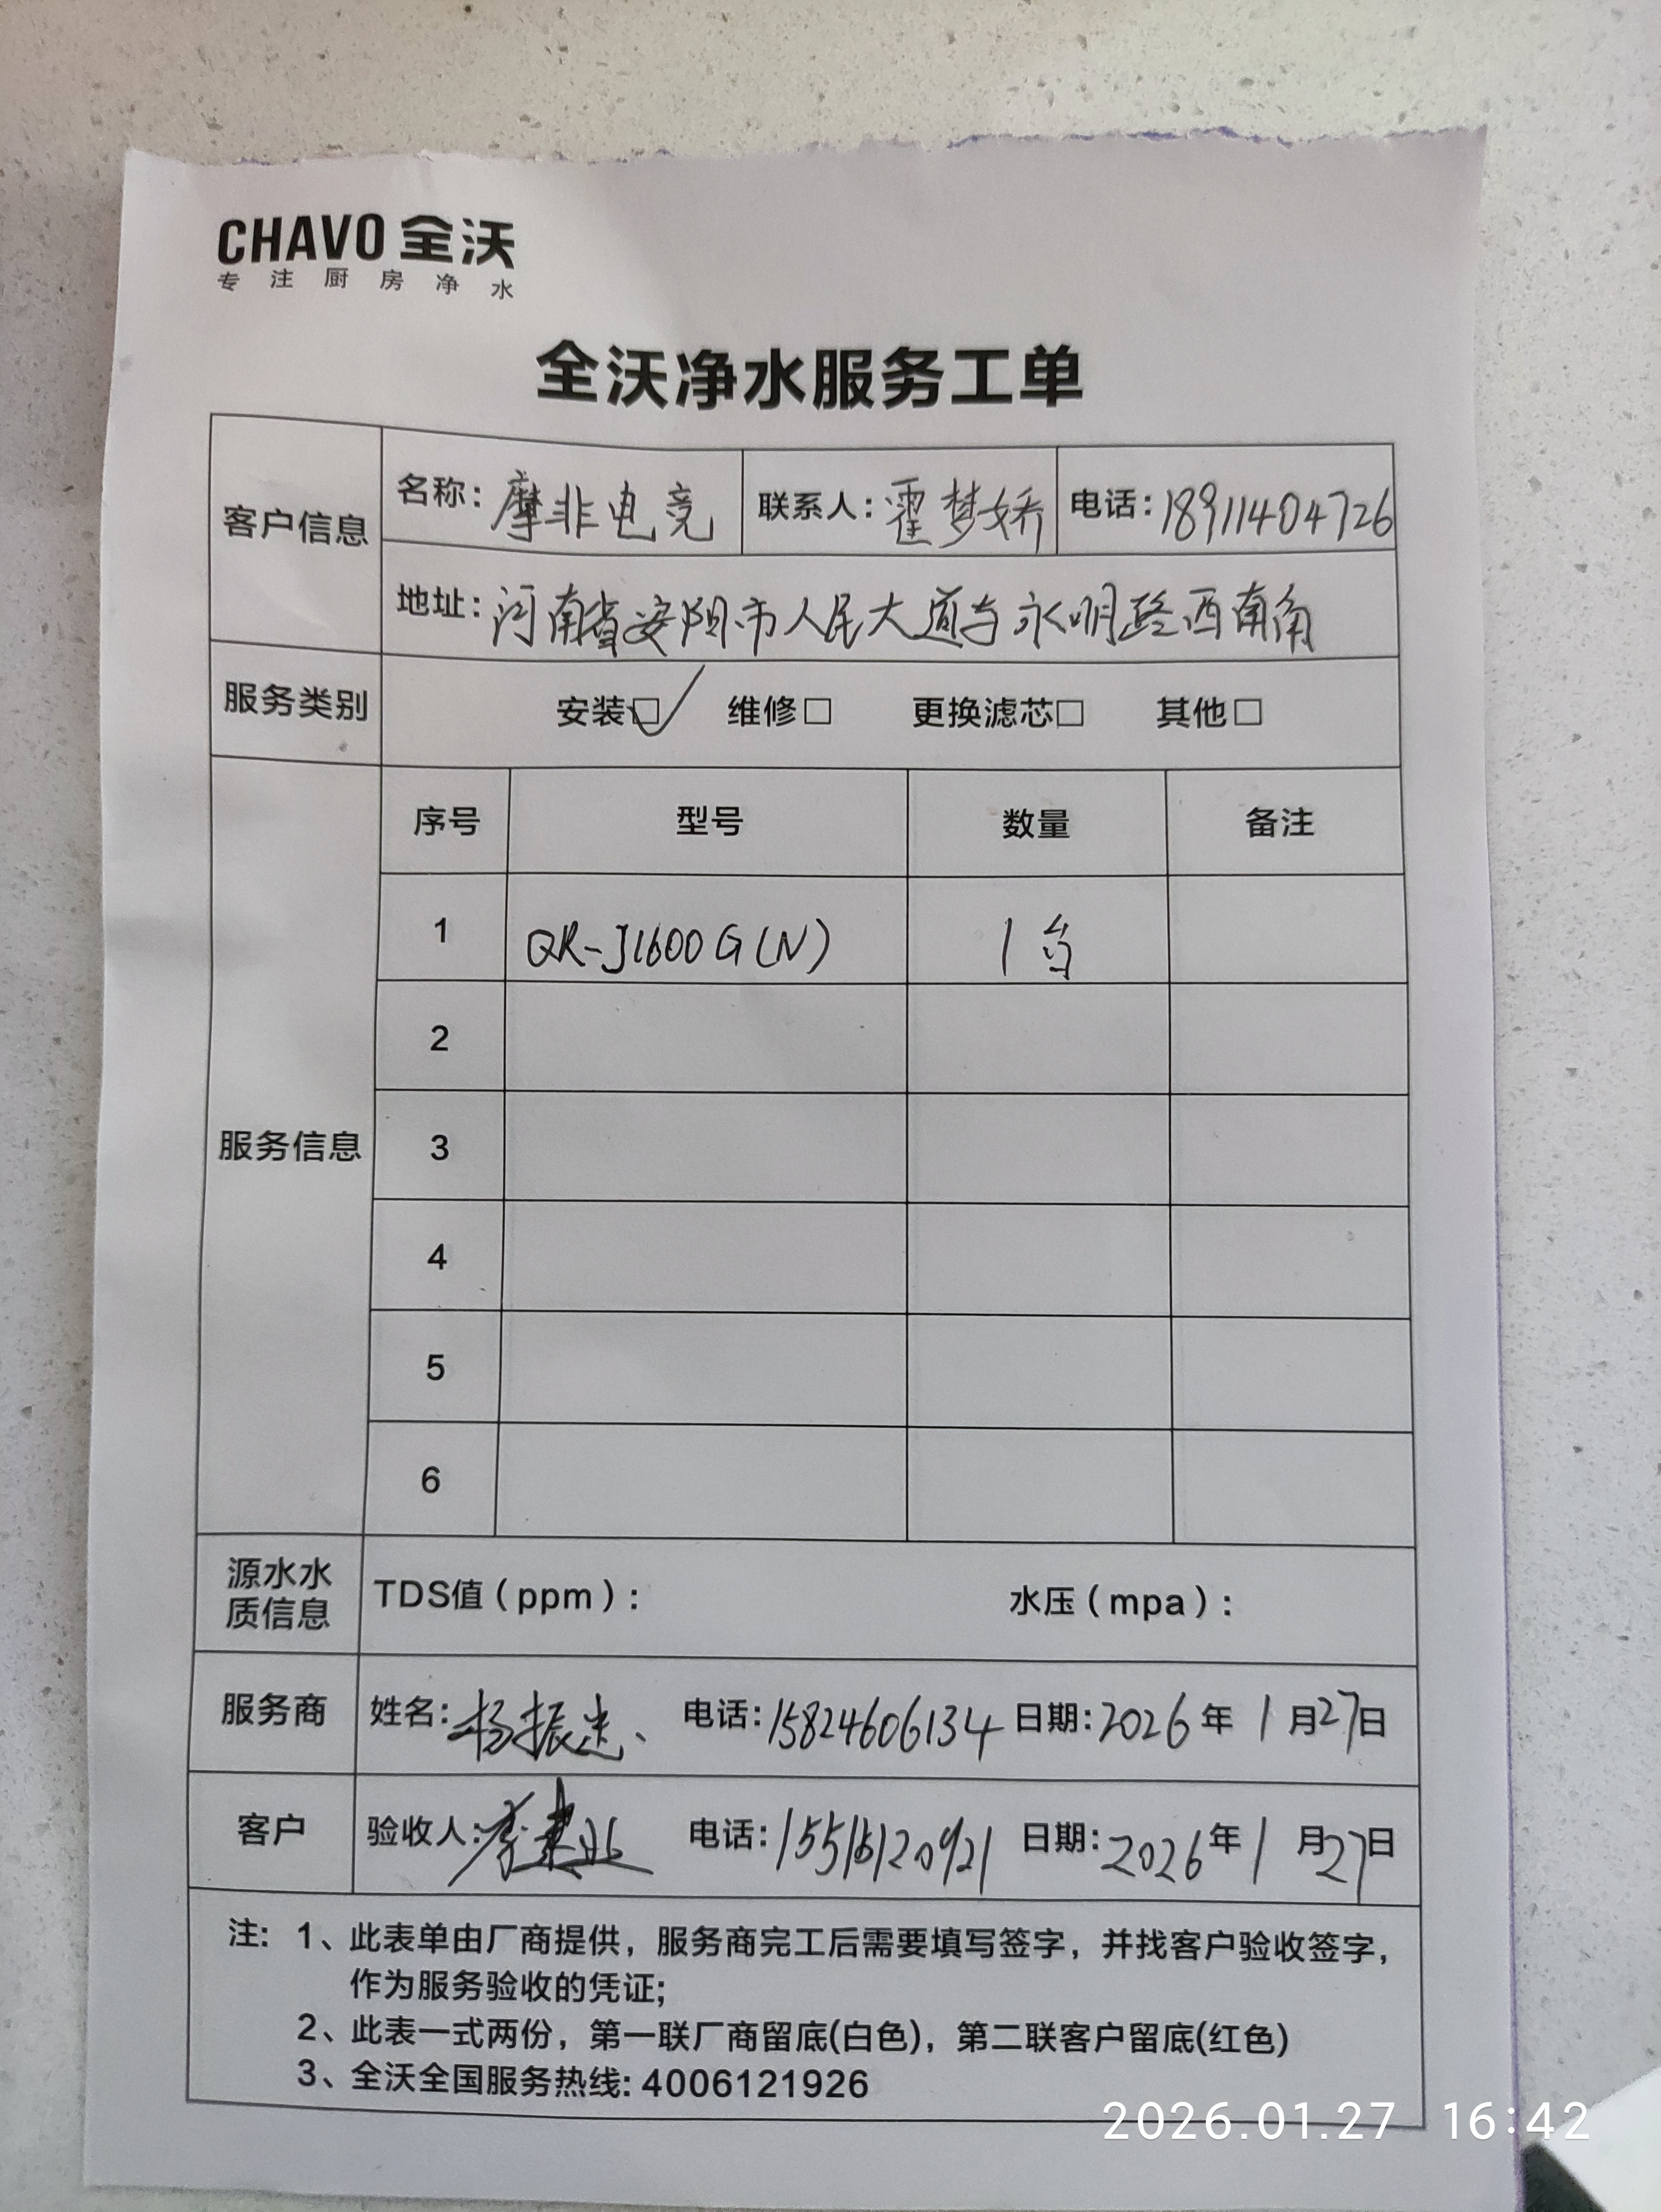 CHAVO 全沃
专注厨房净水
全沃净水服务工单
客户信息 名称：摩非电竞 联系人：霍梦娇 电话：18911404726
地址：河南省安阳市人民大道与永明路西南角
服务类别 安装☑ 维修□ 更换滤芯□ 其他□
服务信息 序号 型号 数量 备注
1 QR-J1600G(N) 1台
2
3
4
5
6
源水水质信息 TDS值（ppm）： 水压（mpa）：
服务商 姓名：杨振 电话：15824606134 日期：2026年1月27日
客户 验收人：李 电话： 日期：2026年1月27日
注：1、此表单由厂商提供，服务商完工后需要填写签字，并找客户验收签字，
作为服务验收的凭证；
2、此表一式两份，第一联厂商留底(白色)，第二联客户留底(红色)
3、全沃全国服务热线：4006121926
2026.01.27 16:42